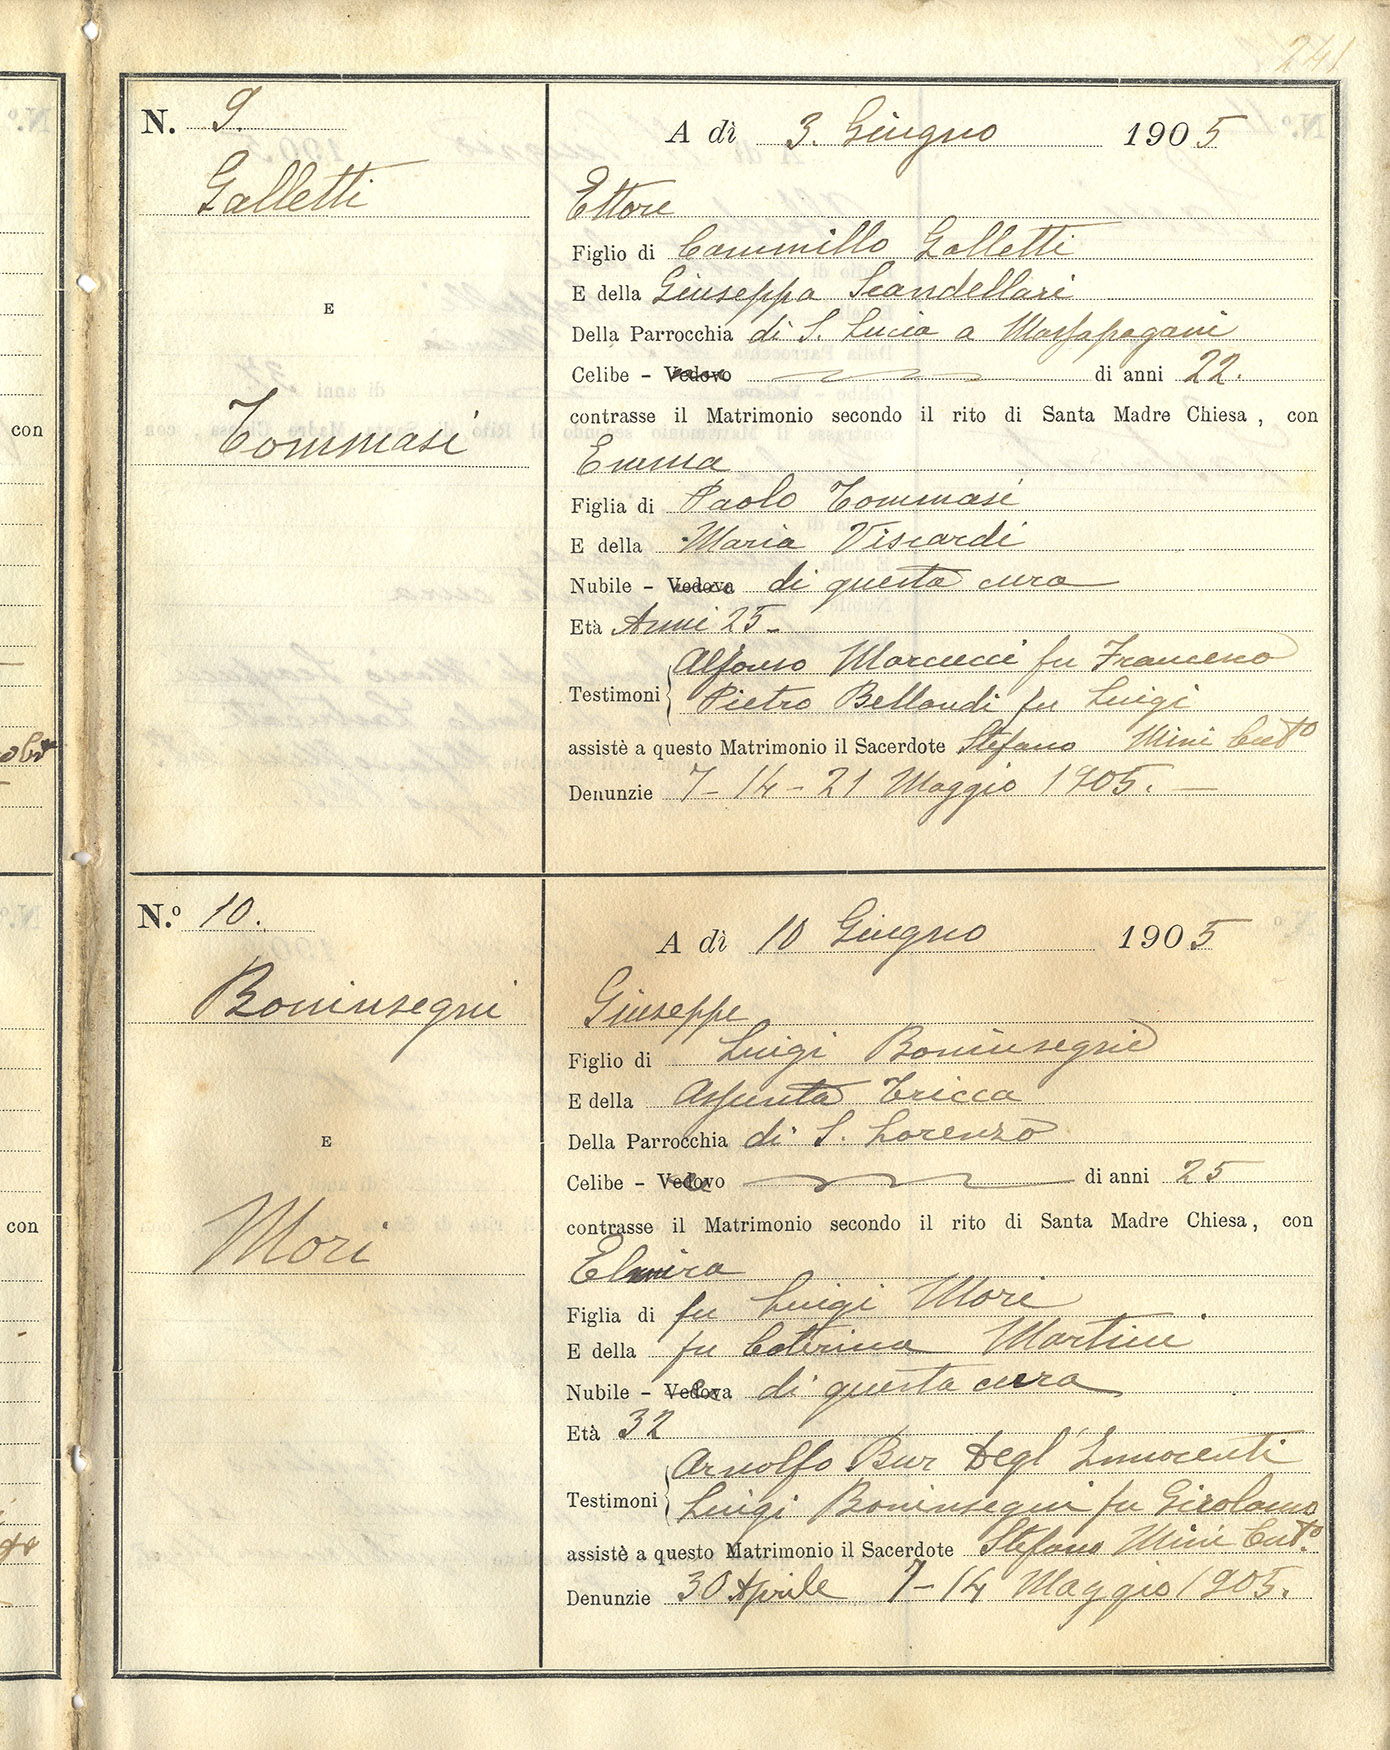 241
N. 9.
Galletti
E
Tommasi
A dì 3. Giugno 1905
Ettore
Figlio di Cammillo Galletti
E della Giuseppa Scandellari
Della Parrocchia di S. Lucia a Massapagani
Celibe - Vedovo di anni 22.
contrasse il Matrimonio secondo il rito di Santa Madre Chiesa, con
Emma
Figlia di Paolo Tommasi
E della Maria Viscardi
Nubile - Vedova di questa cura
Età Anni 25 -
Testimoni Alfonso Marcucci fu Francesco
Pietro Bellandi fu Luigi
assistè a questo Matrimonio il Sacerdote Stefano Mini Cur.to
Denunzie 7 - 14 - 21 Maggio 1905. -
N.º 10.
Boninsegni
E
Mori
A dì 10 Giugno 1905
Giuseppe
Figlio di Luigi Boninsegni
E della Assunta Tricca
Della Parrocchia di S. Lorenzo
Celibe - Vedovo di anni 25
contrasse il Matrimonio secondo il rito di Santa Madre Chiesa, con
Elmira
Figlia di fu Luigi Mori
E della fu Caterina Martini
Nubile - Vedova di questa cura
Età 32
Testimoni Arnolfo Bur Degl'Innocenti
Luigi Boninsegni fu Girolamo
assistè a questo Matrimonio il Sacerdote Stefano Mini Cur.to
Denunzie 30 Aprile 7 - 14 Maggio 1905.
con
con